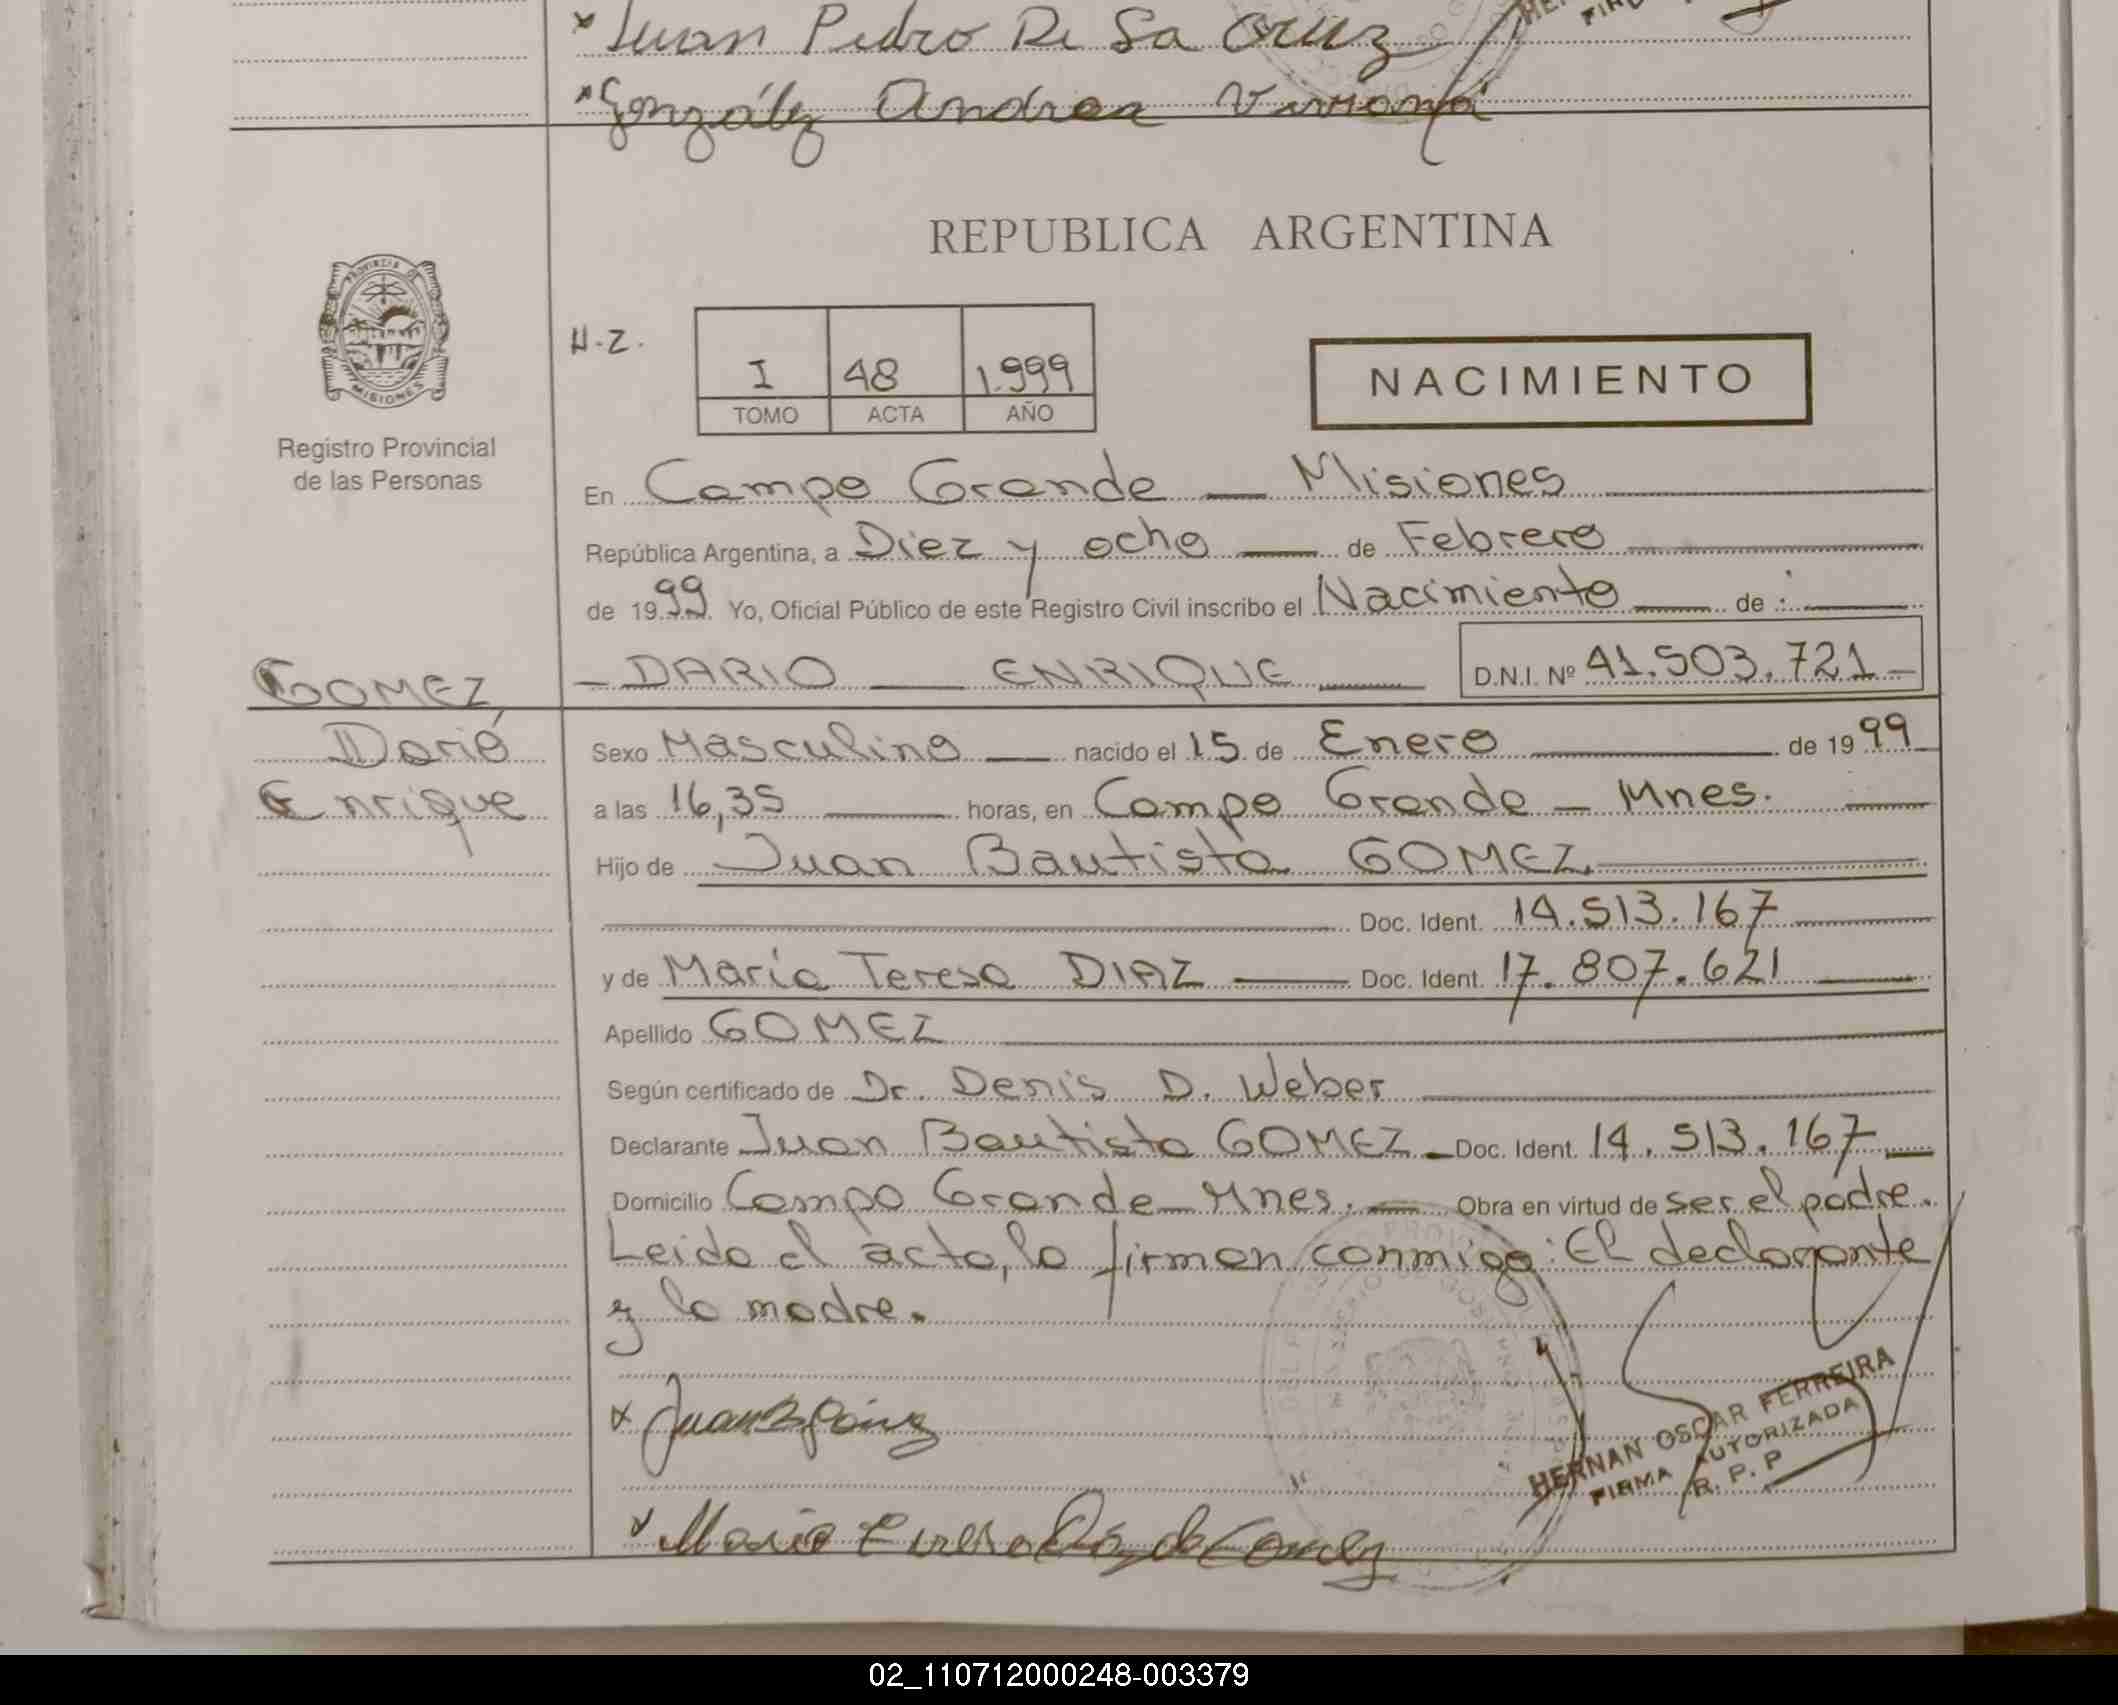 Juan Pedro De Sa Cruz
González Andrea Viviana
REPUBLICA ARGENTINA
PROVINCIA DE
MISIONES
Registro Provincial
de las Personas
H.Z.
I 48 1.999
TOMO ACTA AÑO
NACIMIENTO
En Campo Grande — Misiones
República Argentina, a Diez y ocho — de Febrero
de 1999. Yo, Oficial Público de este Registro Civil inscribo el Nacimiento — de :
GOMEZ, — DARIO — ENRIQUE — D.N.I. Nº 41.503.721
Darío Sexo Masculino — nacido el 15 de Enero — de 1999
Enrique a las 16,35 — horas, en Campo Grande — Mnes.
Hijo de Juan Bautista GOMEZ
Doc. Ident. 14.513.167
y de María Teresa DIAZ — Doc. Ident. 17.807.621
Apellido GOMEZ
Según certificado de Dr. Denis D. Weber
Declarante Juan Bautista GOMEZ — Doc. Ident. 14.513.167
Domicilio Campo Grande — Mnes. — Obra en virtud de ser el padre.
Leida el acta, la firman conmigo: El declarante
y la madre.
x Juan B Gómez
HERNAN OSCAR FERREIRA
FIRMA AUTORIZADA
R. P. P
x María Teresa Díaz de Gomez
02_110712000248-003379